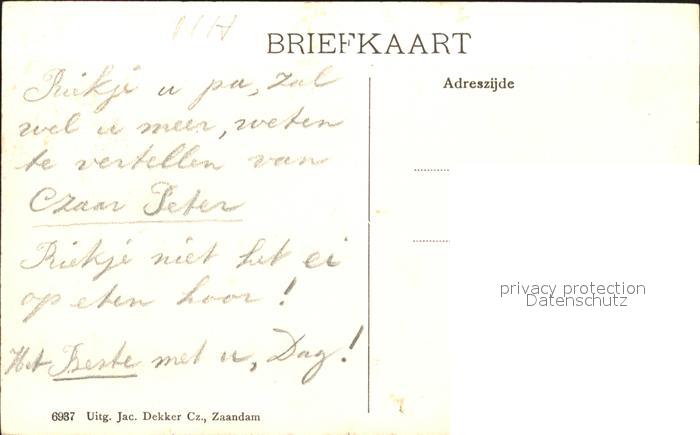 NH
BRIEFKAART
Adreszijde
Riekje u pa, zal
wel u meer, weten
te vertellen van
Czaar Peter
Riekje niet het ei
op eten hoor!
Het Beste met u, Dag!
privacy protection
Datenschutz
6937 Uitg. Jac. Dekker Cz., Zaandam